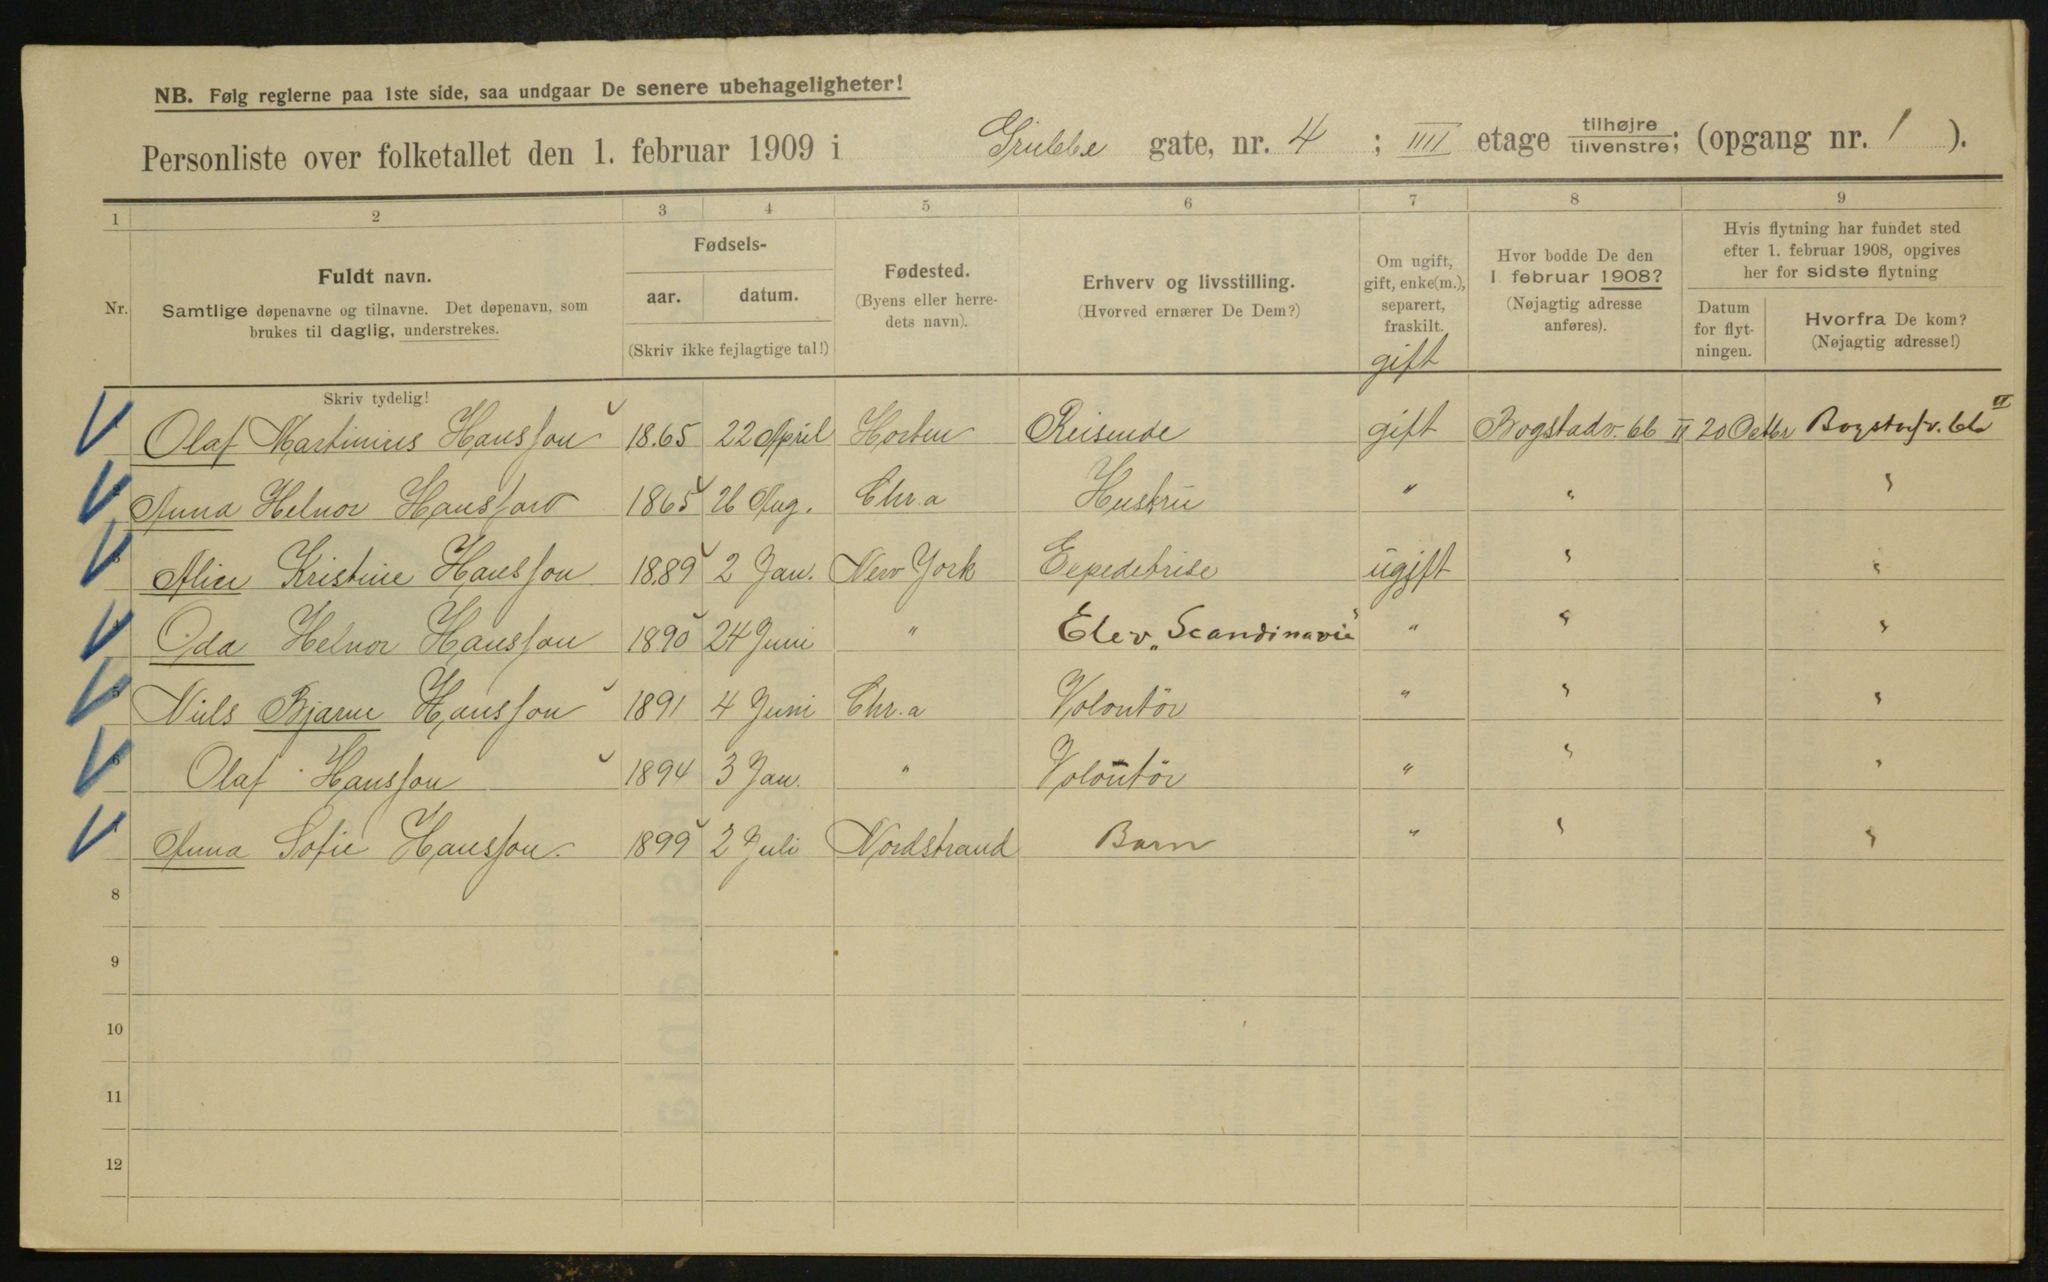 NB. Følg reglerne paa 1ste side, saa undgaar De senere ubehageligheter!
Personliste over folketallet den 1. februar 1909 i Grubbe gate, nr. 4 ; IIII etage tilhøjre tilvenstre; (opgang nr. 1 ).
1 2 3 4 5 6 7 8 9
Nr.
Fuldt navn.
Samtlige døpenavne og tilnavne. Det døpenavn, som
brukes til daglig, understrekes.
Fødsels-
aar. datum.
(Skriv ikke fejlagtige tal!)
Fødested.
(Byens eller herre-
dets navn).
Erhverv og livsstilling.
(Hvorved ernærer De Dem?)
Om ugift,
gift, enke(m.),
separert,
fraskilt.
gift
Hvor bodde De den
1. februar 1908?
(Nøjagtig adresse
anføres).
Hvis flytning har fundet sted
efter 1. februar 1908, opgives
her for sidste flytning
Datum
for flyt-
ningen.
Hvorfra De kom?
(Nøjagtig adresse!)
Skriv tydelig!
Olaf Martinius Hansson 1865 22 April Horten Reisende gift Bogstadv. 66 II 20 Octbr Bogstadv. 66 II
Anna Helnor Hansson 1865 26 Aug. Chr.a Hustru " " "
Alice Kristine Hansson 1889 2 Jan. New York Expeditrise ugift " "
Oda Helnor Hansson 1890 24 Juni " Elev „Scandinavie" " " "
5 Niels Bjarne Hansson 1891 4 Juni Chr.a Volontör " " "
6 Olaf Hansson 1894 3 Jan. " Volontör " " "
Anna Sofie Hansson. 1899 2 Juli Nordstrand Barn " " "
8
9
10
11
12